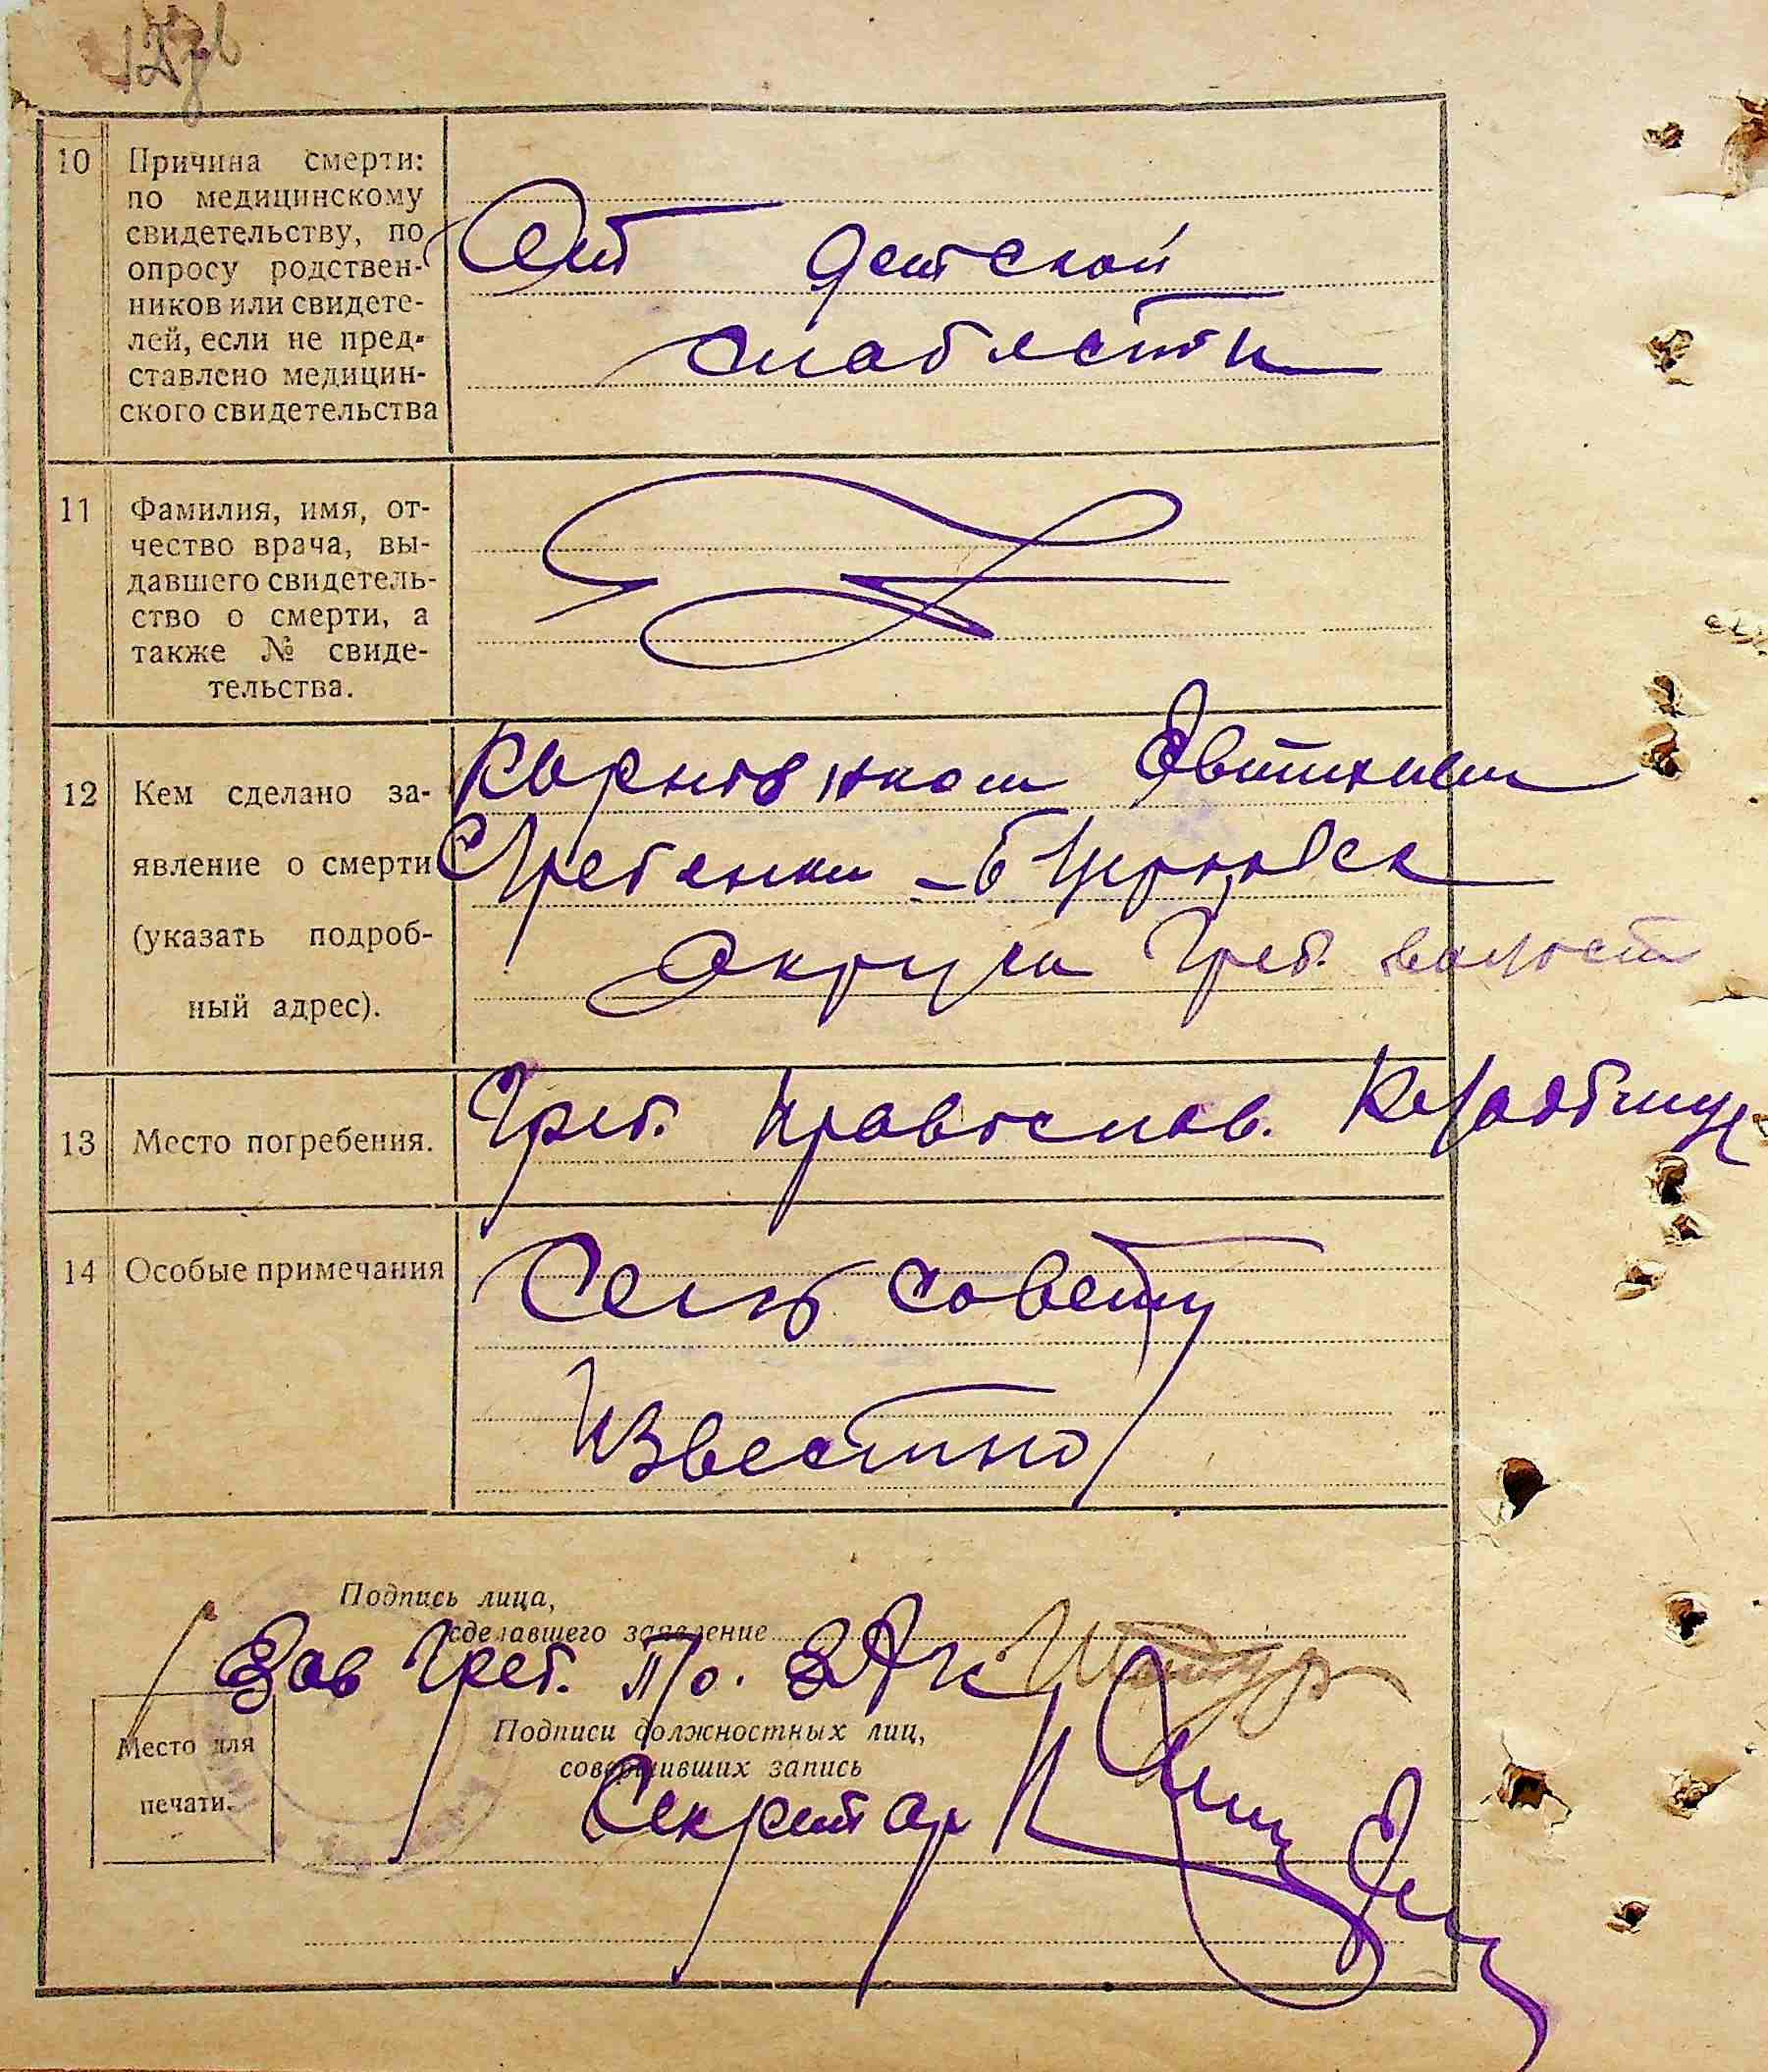 10 Причина смерти:
по медицинскому
свидетельству, по
опросу родствен-
ников или свидете-
лей, если не пред-
ставлено медицин-
ского свидетельства
От детской
слабости
11 Фамилия, имя, от-
чество врача, вы-
давшего свидетель-
ство о смерти, а
также № свиде-
тельства.
12 Кем сделано за-
явление о смерти
(указать подроб-
ный адрес).
Округа Греб. волост
13 Место погребения.
Греб. Православ.
14 Особые примечания
Сель совету
Известно
Подпись лица,
сделавшего заявление
Зав Греб. П/о. ЗАГс
Подписи должностных лиц,
совершивших запись
Секретар
Место для
печати.